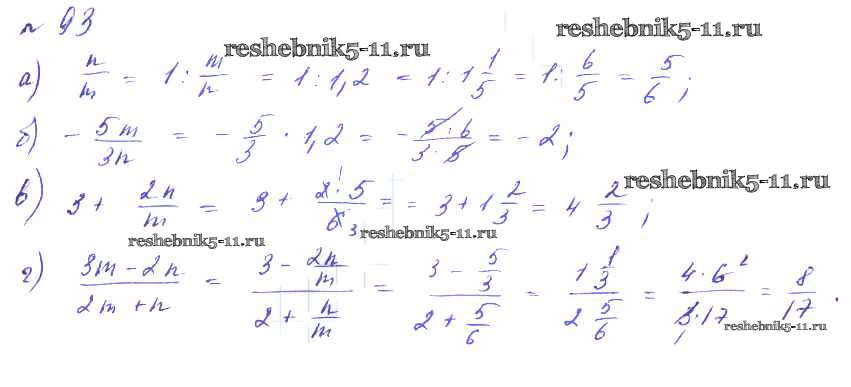 № 93
reshebnik5-11.ru
reshebnik5-11.ru
а) n/m = 1 : m/n = 1 : 1,2 = 1 : 1 1/5 = 1 : 6/5 = 5/6 ;
б) - 5m/3n = - 5/3 · 1,2 = - 5·6/3·5 = - 2 ;
reshebnik5-11.ru
в) 3 + 2n/m = 3 + 2¹·5/6₃ = = 3 + 1 2/3 = 4 2/3 ;
reshebnik5-11.ru
reshebnik5-11.ru
г) 3m - 2n/2m + n = 3 - 2n/m / 2 + n/m = 3 - 5/3 / 2 + 5/6 = 1 1/3 / 2 5/6 = 4·6²/3₁·17 = 8/17 .
reshebnik5-11.ru